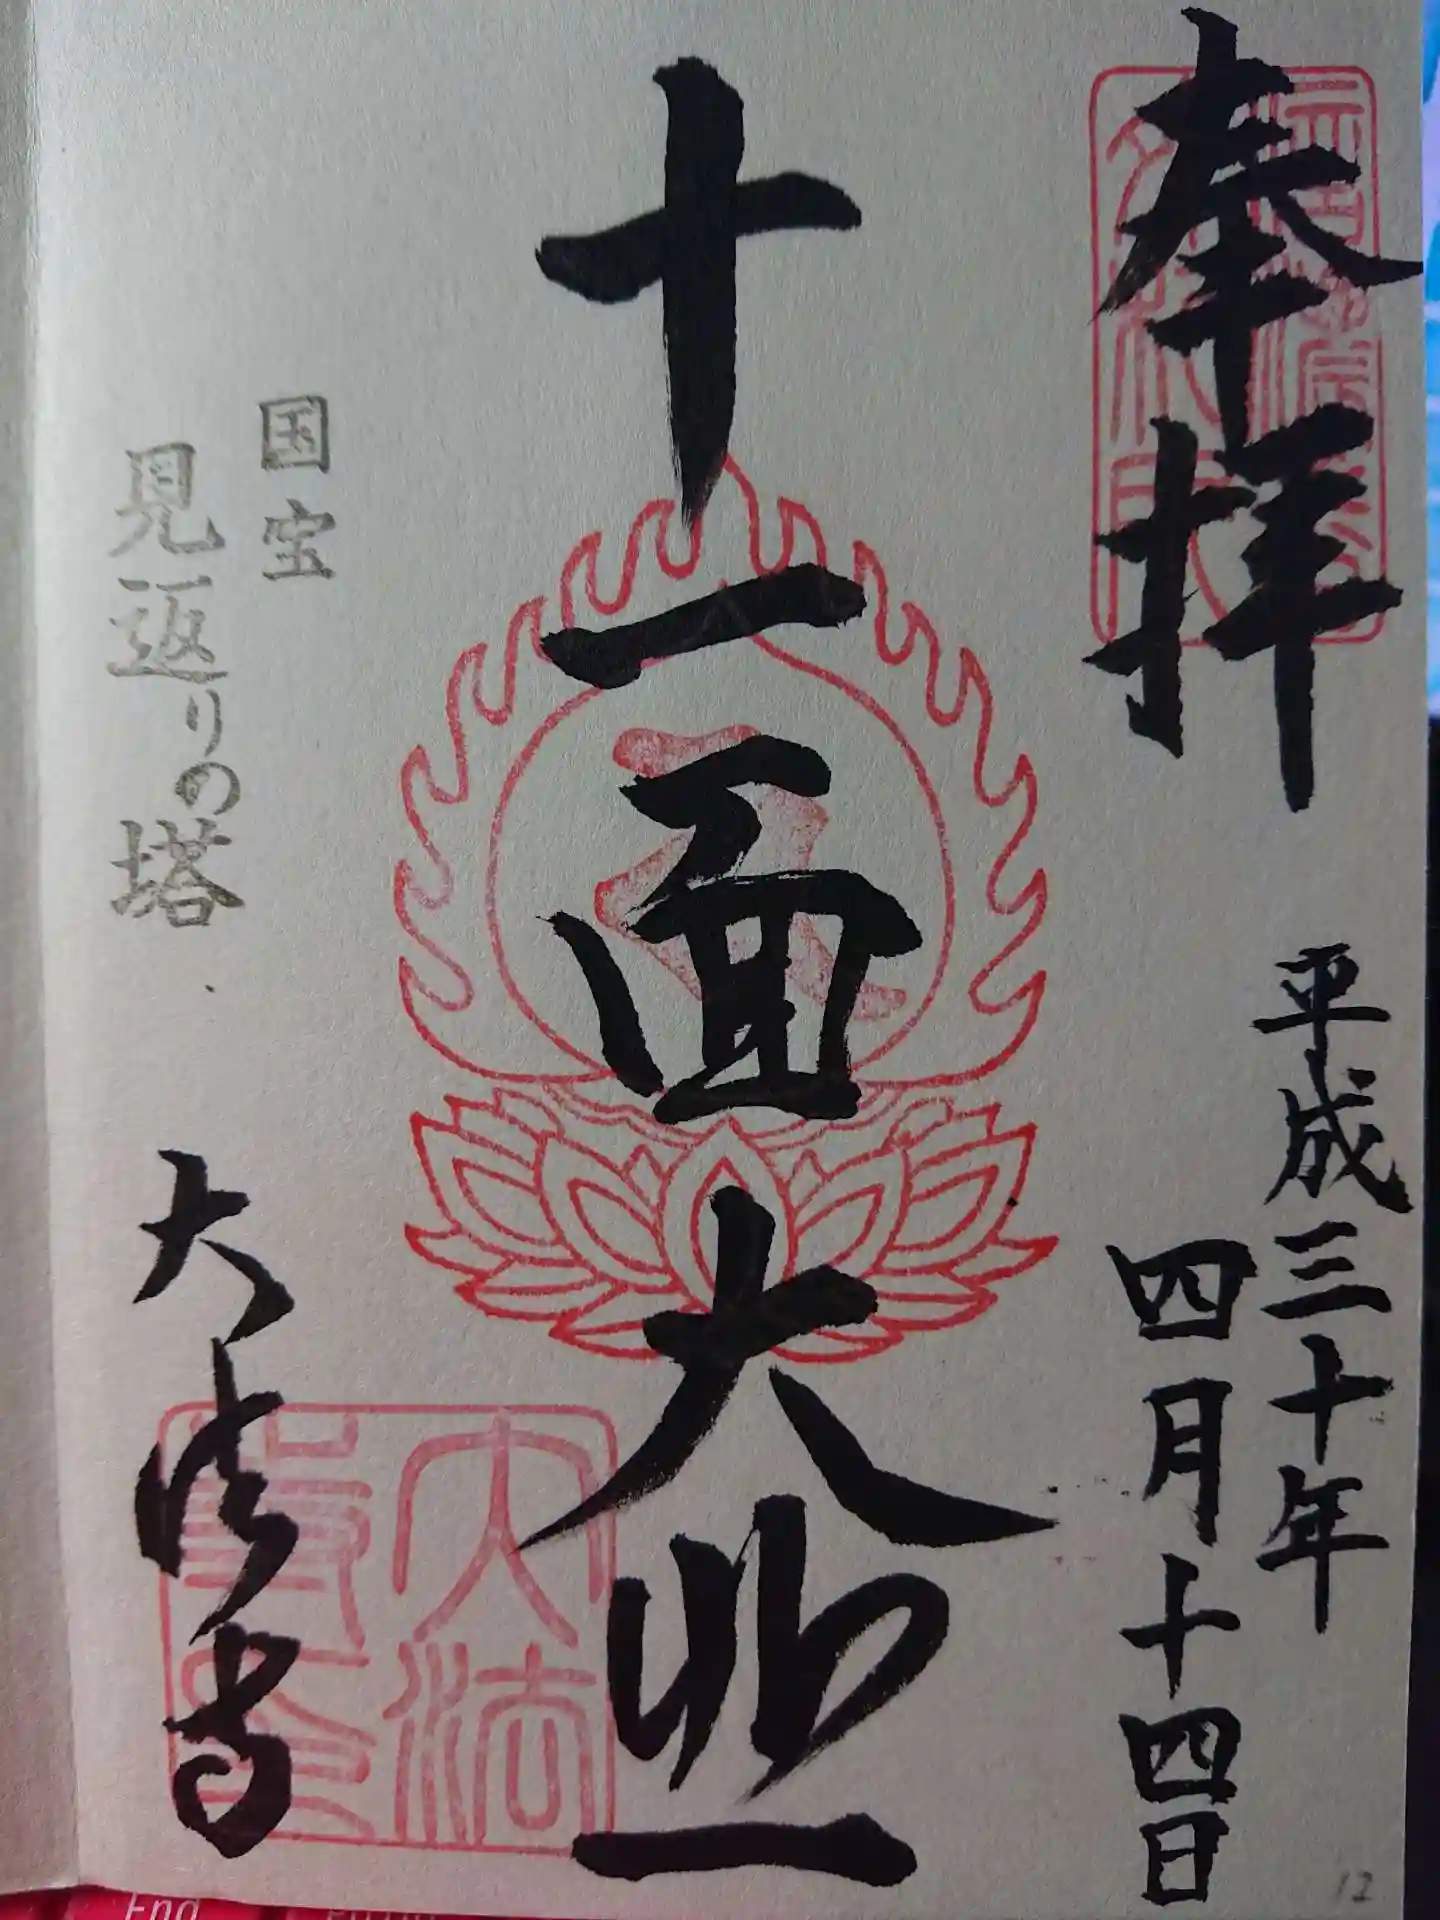 奉拝
平成三十年
四月十四日
十一面大悲
国宝
見返りの塔
大法寺
大法
12
End